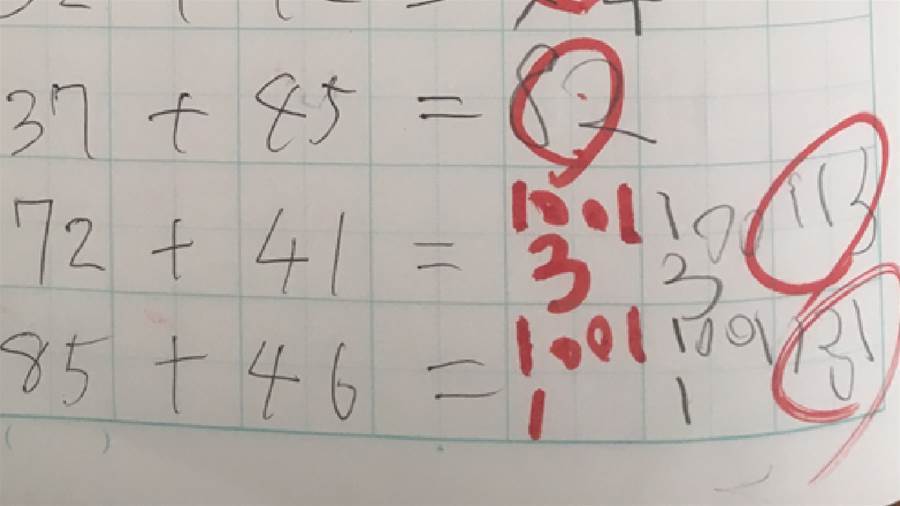 37 + 85 = 82
72 + 41 = 1001 100 113
3 3
85 + 46 = 1001 1001 131
1 1
( )